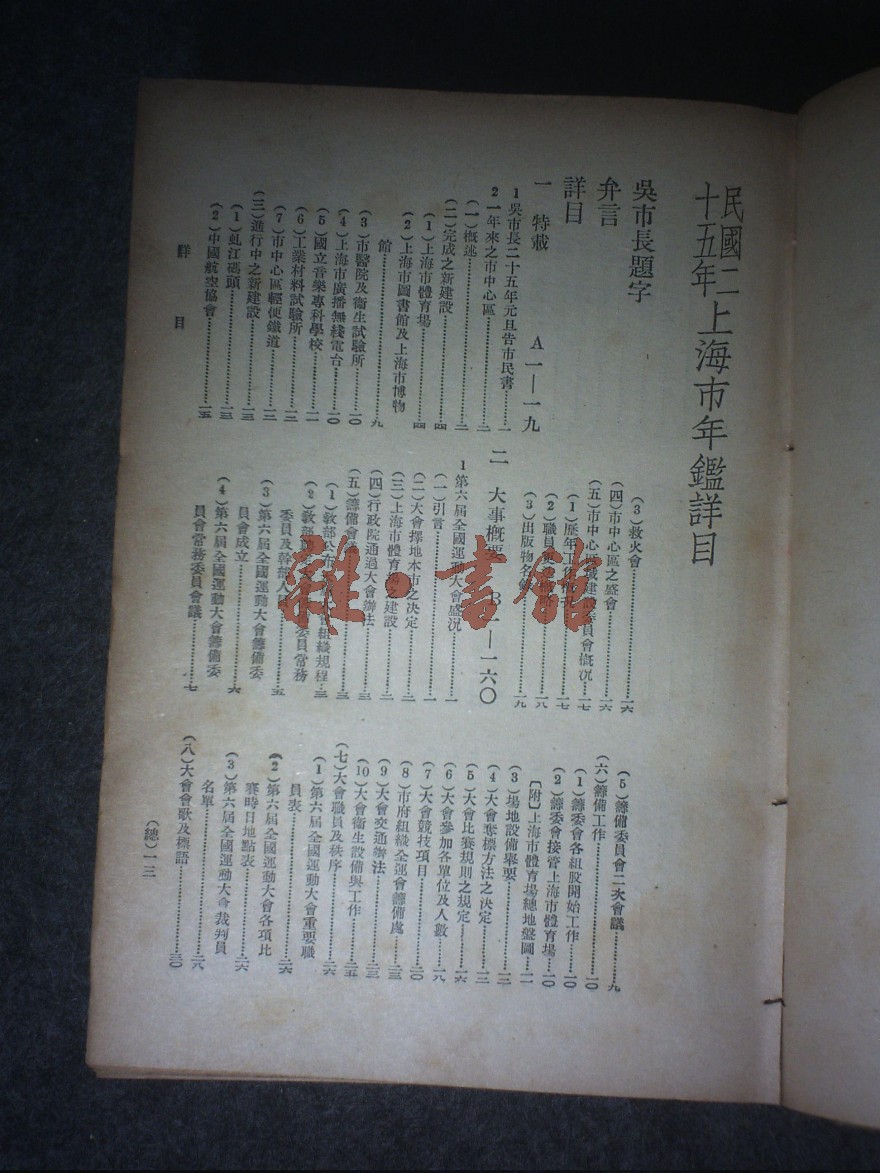 民國二十五年上海市年鑑詳目
吳市長題字
弁言
詳目
一 特載 A一—一九
1 吳市長二十五年元旦告市民書…………一
2 一年來之市中心區…………二
(一)概述…………二
(二)完成之新建設…………四
(1)上海市體育場…………四
(2)上海市圖書館及上海市博物
館…………九
(3)市醫院及衛生試驗所…………一〇
(4)上海市廣播無綫電台…………一〇
(5)國立音樂專科學校…………一一
(6)工業材料試驗所…………一三
(7)市中心區輕便鐵道…………一三
(三)進行中之新建設…………一三
(1)虬江碼頭…………一三
(2)中國航空協會…………一五
(3)救火會…………一六
(四)市中心區之盛會…………一六
(五)市中心區域建設委員會概况…………一七
(1)歷年工作…………一七
(2)職員…………一八
(3)出版物名…………一九
二 大事概要 B一—一六〇
1 第六屆全國運動大會盛況…………一
(一)引言…………一
(二)大會擇地本市之决定…………二
(三)上海市體育場之建設…………二
(四)行政院通過大會辦法…………三
(五)籌備會議…………三
(1)教部公布組織規程…………三
(2)教部委員常務
委員及幹部人員…………五
(3)第六屆全國運動大會籌備委
員會成立…………六
(4)第六屆全國運動大會籌備委
員會常務委員會議…………七
(5)籌備委員會二次會議…………九
(六)籌備工作…………一〇
(1)籌委會各組股開始工作…………一〇
(2)籌委會接管上海市體育場…………一〇
[附]上海市體育場總地盤圖…………一一
(3)場地設備舉要…………一二
(4)大會奪標方法之决定…………一三
(5)大會比賽規則之規定…………一六
(6)大會參加各單位及人數…………一八
(7)大會競技項目…………二〇
(8)市府組織全運會籌備處…………二三
(9)大會交通辦法…………二三
(10)大會衛生設備與工作…………二五
(七)大會職員及秩序…………二六
(1)第六屆全國運動大會重要職
員表…………二六
(2)第六屆全國運動大會各項比
賽時日地點表…………二六
(3)第六屆全國運動大會裁判員
名單…………二八
(八)大會會歌及標語…………三〇
詳目
(總)一三
雜·書館